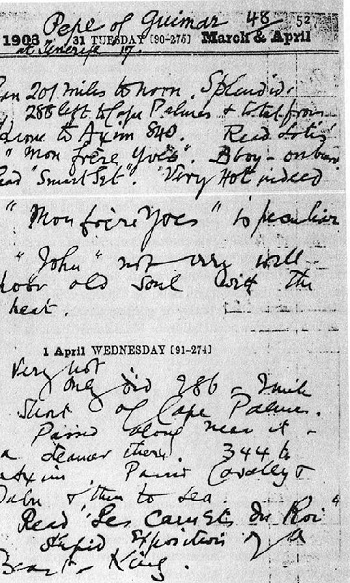 Pepe of Guimar 48 52
1903 31 TUESDAY [90-275] March & April
at Tenerife 17.
Ran 201 miles to noon. Splendid.
288 left to Cape Palmes & total from
to Axim 840. Read Loti's
"Mon frère Yves".
read "Smart Set". Very Hot indeed
"Mon frère Yves" is peculiar
"John" not very well
poor old soul with the
heat.
1 April WEDNESDAY [91-274]
Very hot
Only did 286 - 2 mile
Short of Cape Palmes.
Passed along near it -
a steamer there. 344 to
Axim. Passed Cavally &
& then to sea
Read "Les Carnets du Roi"
stupid exposition of a
Beast - King.